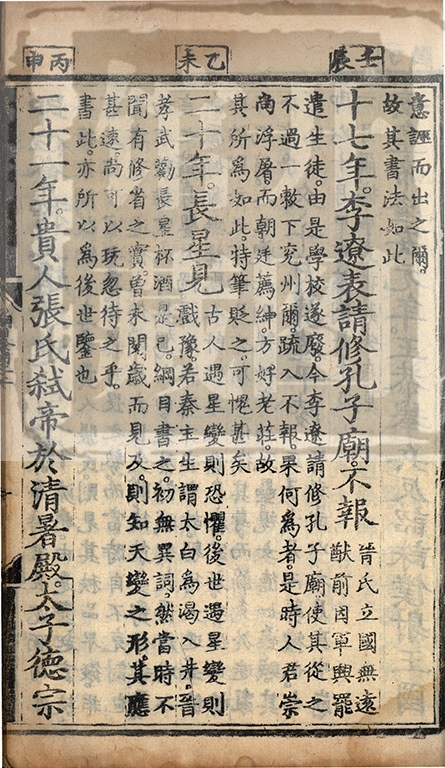 壬辰
乙未
丙申
意誣而出之爾
故其書法如此
十七年。李遼表請修孔子廟。不報
晉氏立國無遠
猷前因軍興罷
遣生徒。由是學校遂廢。今李遼請修孔子廟。使其從之
不過一敕下兗州爾。疏入不報。果何爲者。是時人君崇
尚浮屠。而朝廷薦紳。方好老莊。故
其所爲如此。特筆貶之。可愧甚矣
二十年。長星見
古人遇星變則恐懼。後世遇星變則
戲豫。若秦主生謂太白爲渴入井。晉
孝武勸長星杯酒是已。綱目書之。初無異詞。然當時不
聞有修省之實。曾未閱歲而見及。則知天變之形。其應
甚速。尚可以玩忽待之乎。
書此。亦所以爲後世鑒也
二十一年。貴人張氏弒帝於清暑殿。太子德宗